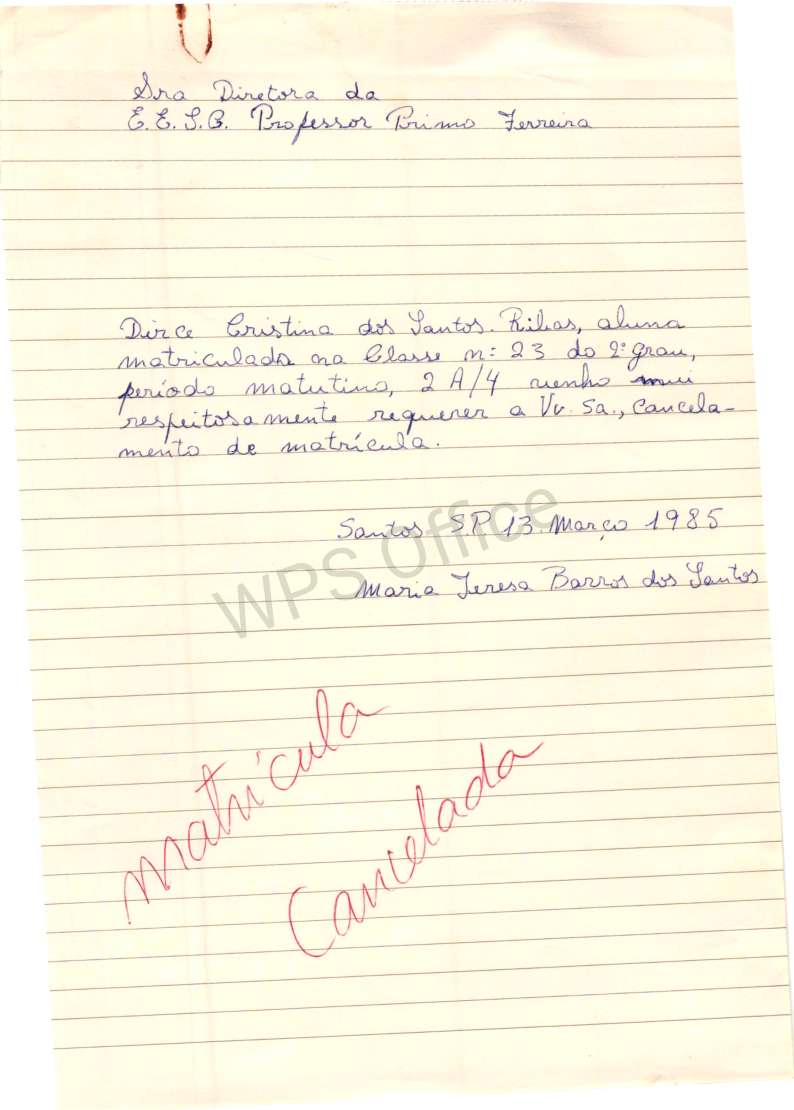 Sra Diretora da
E.E.S.G. Professor Primo Ferreira
Dirce Cristina dos Santos. Ribas, aluna
matriculada na Classe n: 23 do 2º grau,
período matutino, 2 A/4 venho mui
respeitosamente requerer a Vv. Sa., cancela-
mento de matrícula.
Santos S.P 13. Março 1985
Maria Teresa Barros dos Santos
WPS Office
matrícula
Cancelada